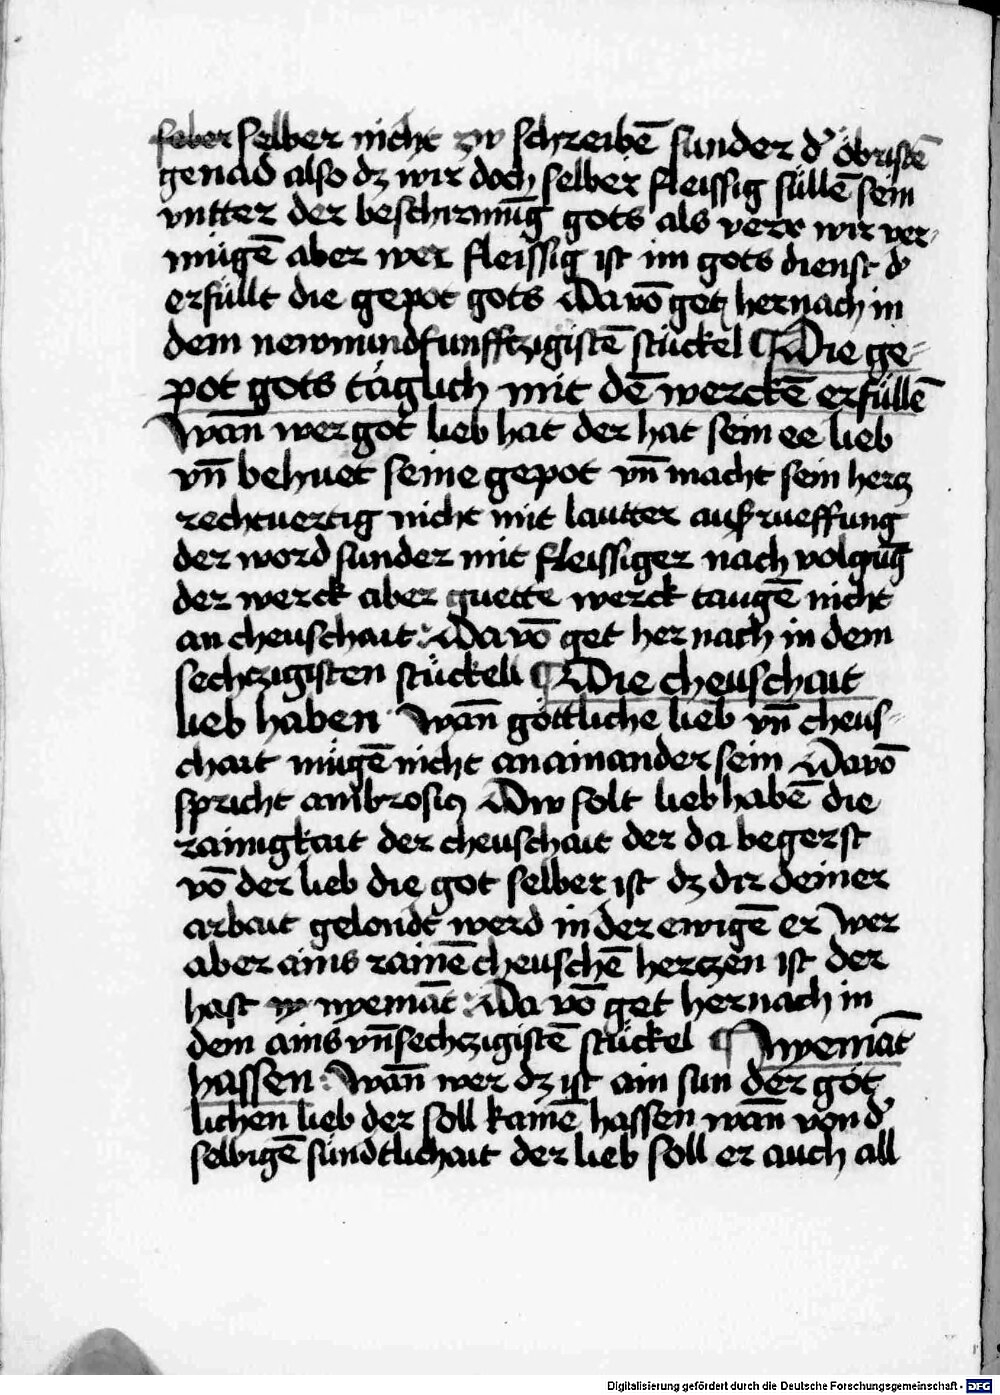 selber nicht zw schreibē sunder dˀ öbristē
genad also dz wir doch selber fleissig süllē sein
vntter der beschirmūg gots als verr wir ver-
mügē aber wer fleissig ist im gots dienst dˀ
erfüllt die gepot gots Da vō get hernach in
dem newnundfunfftzigistē stückel ¶ Die ge-
pot gots täglich mit dē werckē erfüllē
Wan̄ wer got lieb hat der hat sein ee lieb
vn̄ behuet seine gepot vn̄ macht sein hercz
rechtuertig nicht mit lautter auſzrueffung
der word sunder mit fleissiger nach volgūg
der werck aber guette werck taugē nicht
an cheuschait Da vō get her nach in dem
sechtzigisten stückell ¶ Die cheuschait
lieb haben Wan̄ göttliche lieb vn̄ cheus-
chait mügē nicht an ainander sein Davō
spricht ambrosiꝰ Dw solt lieb habē die
rainigkait der cheuschait der da begerst
vō der lieb die got selber ist dz dir deiner
arbait gelondt werd in der ewigē er Wer
aber ains rainē cheuschē hertzen ist der
hast nyemāt Da vō get hernach in
dem ains vn̄ sechtzigistē stückel ¶ Nyemāt
hassen Wan̄ wer dz ist ain sun der göt-
lichen lieb der soll kainē hassen wan̄ von dˀ
selbigē sündtlichait der lieb soll er auch all
Digitalisierung gefördert durch die Deutsche Forschungsgemeinschaft - DFG